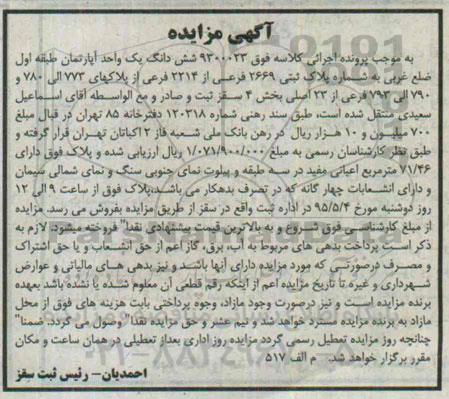 آگهی مزایده
به موجب پرونده اجرائی کلاسه فوق ۹۳۰۰۰۲۳ شش دانگ یک واحد آپارتمان طبقه اول
ضلع غربی به شماره پلاک ثبتی ۲۶۶۹ فرعی از ۲۲۱۴ فرعی از پلاکهای ۷۷۳ الی ۷۸۰ و
۷۹۰ الی ۷۹۳ فرعی از ۲۳ اصلی بخش ۴ سقز ثبت و صادر و مع الواسطه آقای اسماعیل
سعیدی منتقل شده است، طبق سند رهنی شماره ۱۲۰۳۱۸ دفترخانه ۸۵ تهران در قبال مبلغ
۷۰۰ میلیون و ۱۰ هزار ریال در رهن بانک ملی شعبه فاز ۲ اکباتان تهران قرار گرفته و
طبق نظر کارشناسان رسمی به مبلغ ۱/۰۷۱/۹۰۰/۰۰۰ ریال ارزیابی شده و پلاک فوق دارای
۷۱/۴۶ مترمربع اعیانی مفید در سه طبقه و پیلوت نمای جنوبی سنگ و نمای شمالی سیمان
و دارای انشعابات چهار گانه که در تصرف بدهکار می باشد.پلاک فوق از ساعت ۹ الی ۱۲
روز دوشنبه مورخ ۹۵/۵/۴ در اداره ثبت واقع در سقز از طریق مزایده بفروش می رسد. مزایده
از مبلغ کارشناسی فوق شروع و به بالاترین قیمت پیشنهادی نقدا" فروخته میشود. لازم به
ذکر است پرداخت بدهی های مربوط به آب، برق، گاز اعم از حق انشعاب و یا حق اشتراک
و مصرف درصورتی که مورد مزایده دارای آنها باشد و نیز بدهی های مالیاتی و عوارض
شهرداری و غیره تا تاریخ مزایده اعم از اینکه رقم قطعی آن معلوم شده یا نشده باشد بعهده
برنده مزایده است و نیز درصورت وجود مازاد، وجوه پرداختی بابت هزینه های فوق از محل
مازاد به برنده مزایده مسترد خواهد شد و نیم عشر و حق مزایده نقدا" وصول می گردد. ضمنا"
چنانچه روز مزایده تعطیل رسمی گردد مزایده روز اداری بعداز تعطیلی در همان ساعت و مکان
مقرر برگزار خواهد شد. م الف ۵۱۷
احمدیان– رئیس ثبت سقز